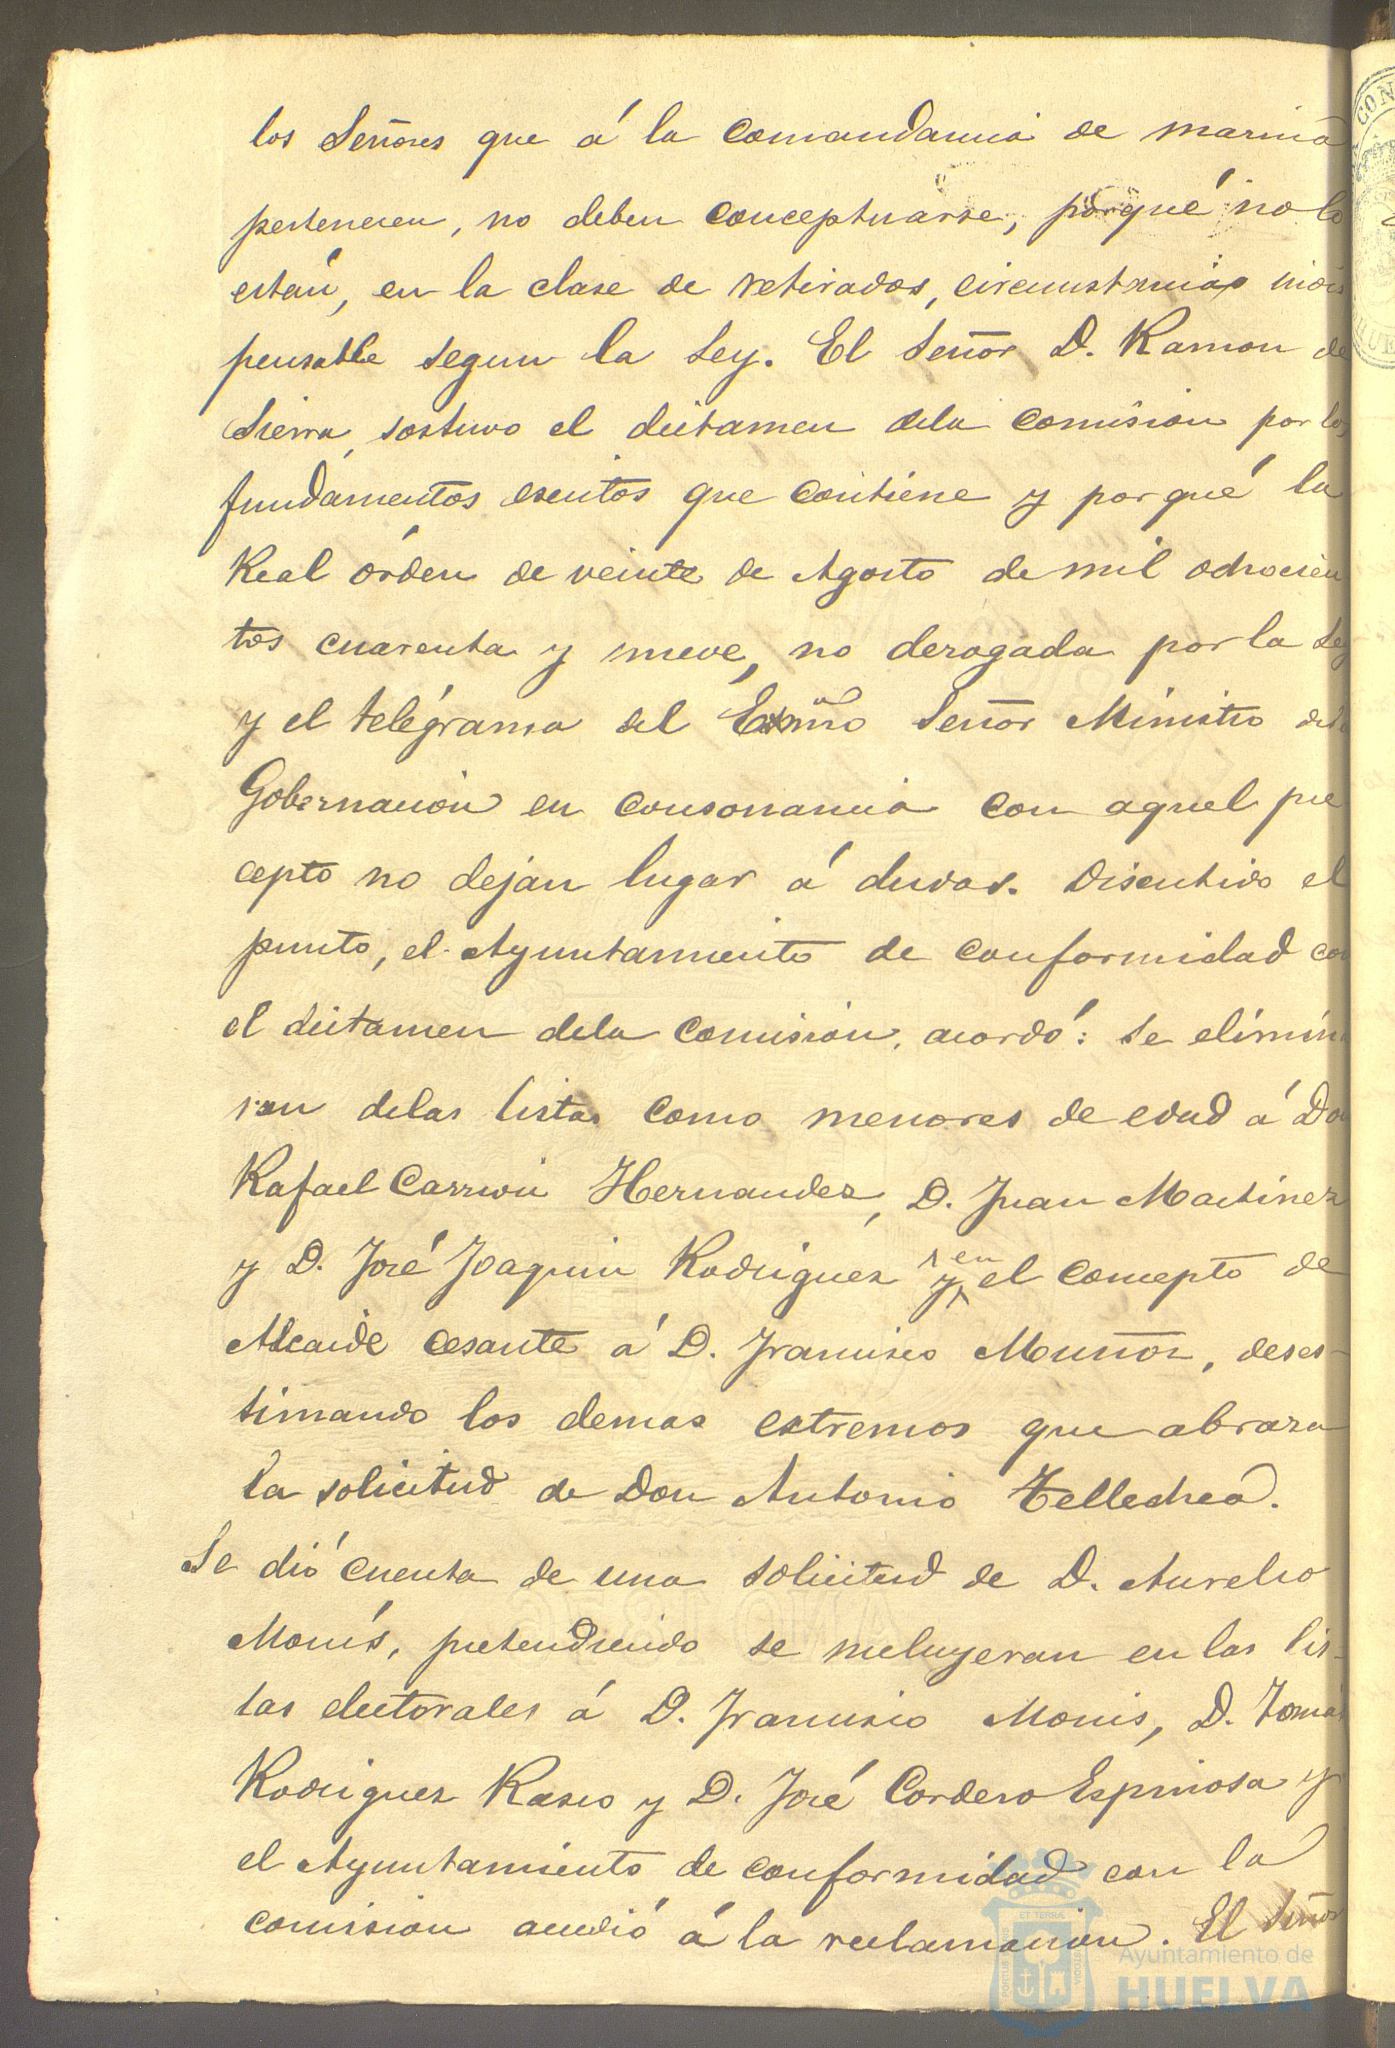 los Señores que á la Comandancia de marina
pertenecen, no deben conceptuarse, porqué no lo
están, en la clase de retirados, circunstancias indis
pensable segun la Ley. El Señor D. Ramon de
Sierra, sostuvo el dictamen dela Comision por los
fundamentos escritos que contiene y por qué la
Real órden de veinte de Agosto de mil ochocien
tos cuarenta y nueve, no derogada por la Ley
y el telégrama del Exmo Señor Ministro dela
Gobernacion en consonancia con aquel pre
cepto no dejan lugar á dudas. Discutido el
punto, el Ayuntamiento de conformidad con
el dictamen dela Comision, acordó: se elimina
ran delas listas como menores de edad á Don
Rafael Carrion Hernandez, D. Juan Martinez
y D. José Joaquin Rodriguez y en el concepto de
Alcaide cesante á D. Francisco Muñoz, deses-
timando los demas extremos que abraza
la solicitud de Don Antonio Tellechea.
Se dió cuenta de una solicitud de D. Aurelio
Monís, pretendiendo se incluyeran en las lis-
tas electorales á D. Francisco Monis, D. Tomás
Rodriguez Rasco y D. José Cordero Espinosa y
el Ayuntamiento de conformidad con la
comision accedió á la reclamacion. El Señor
Ayuntamiento de
HUELVA